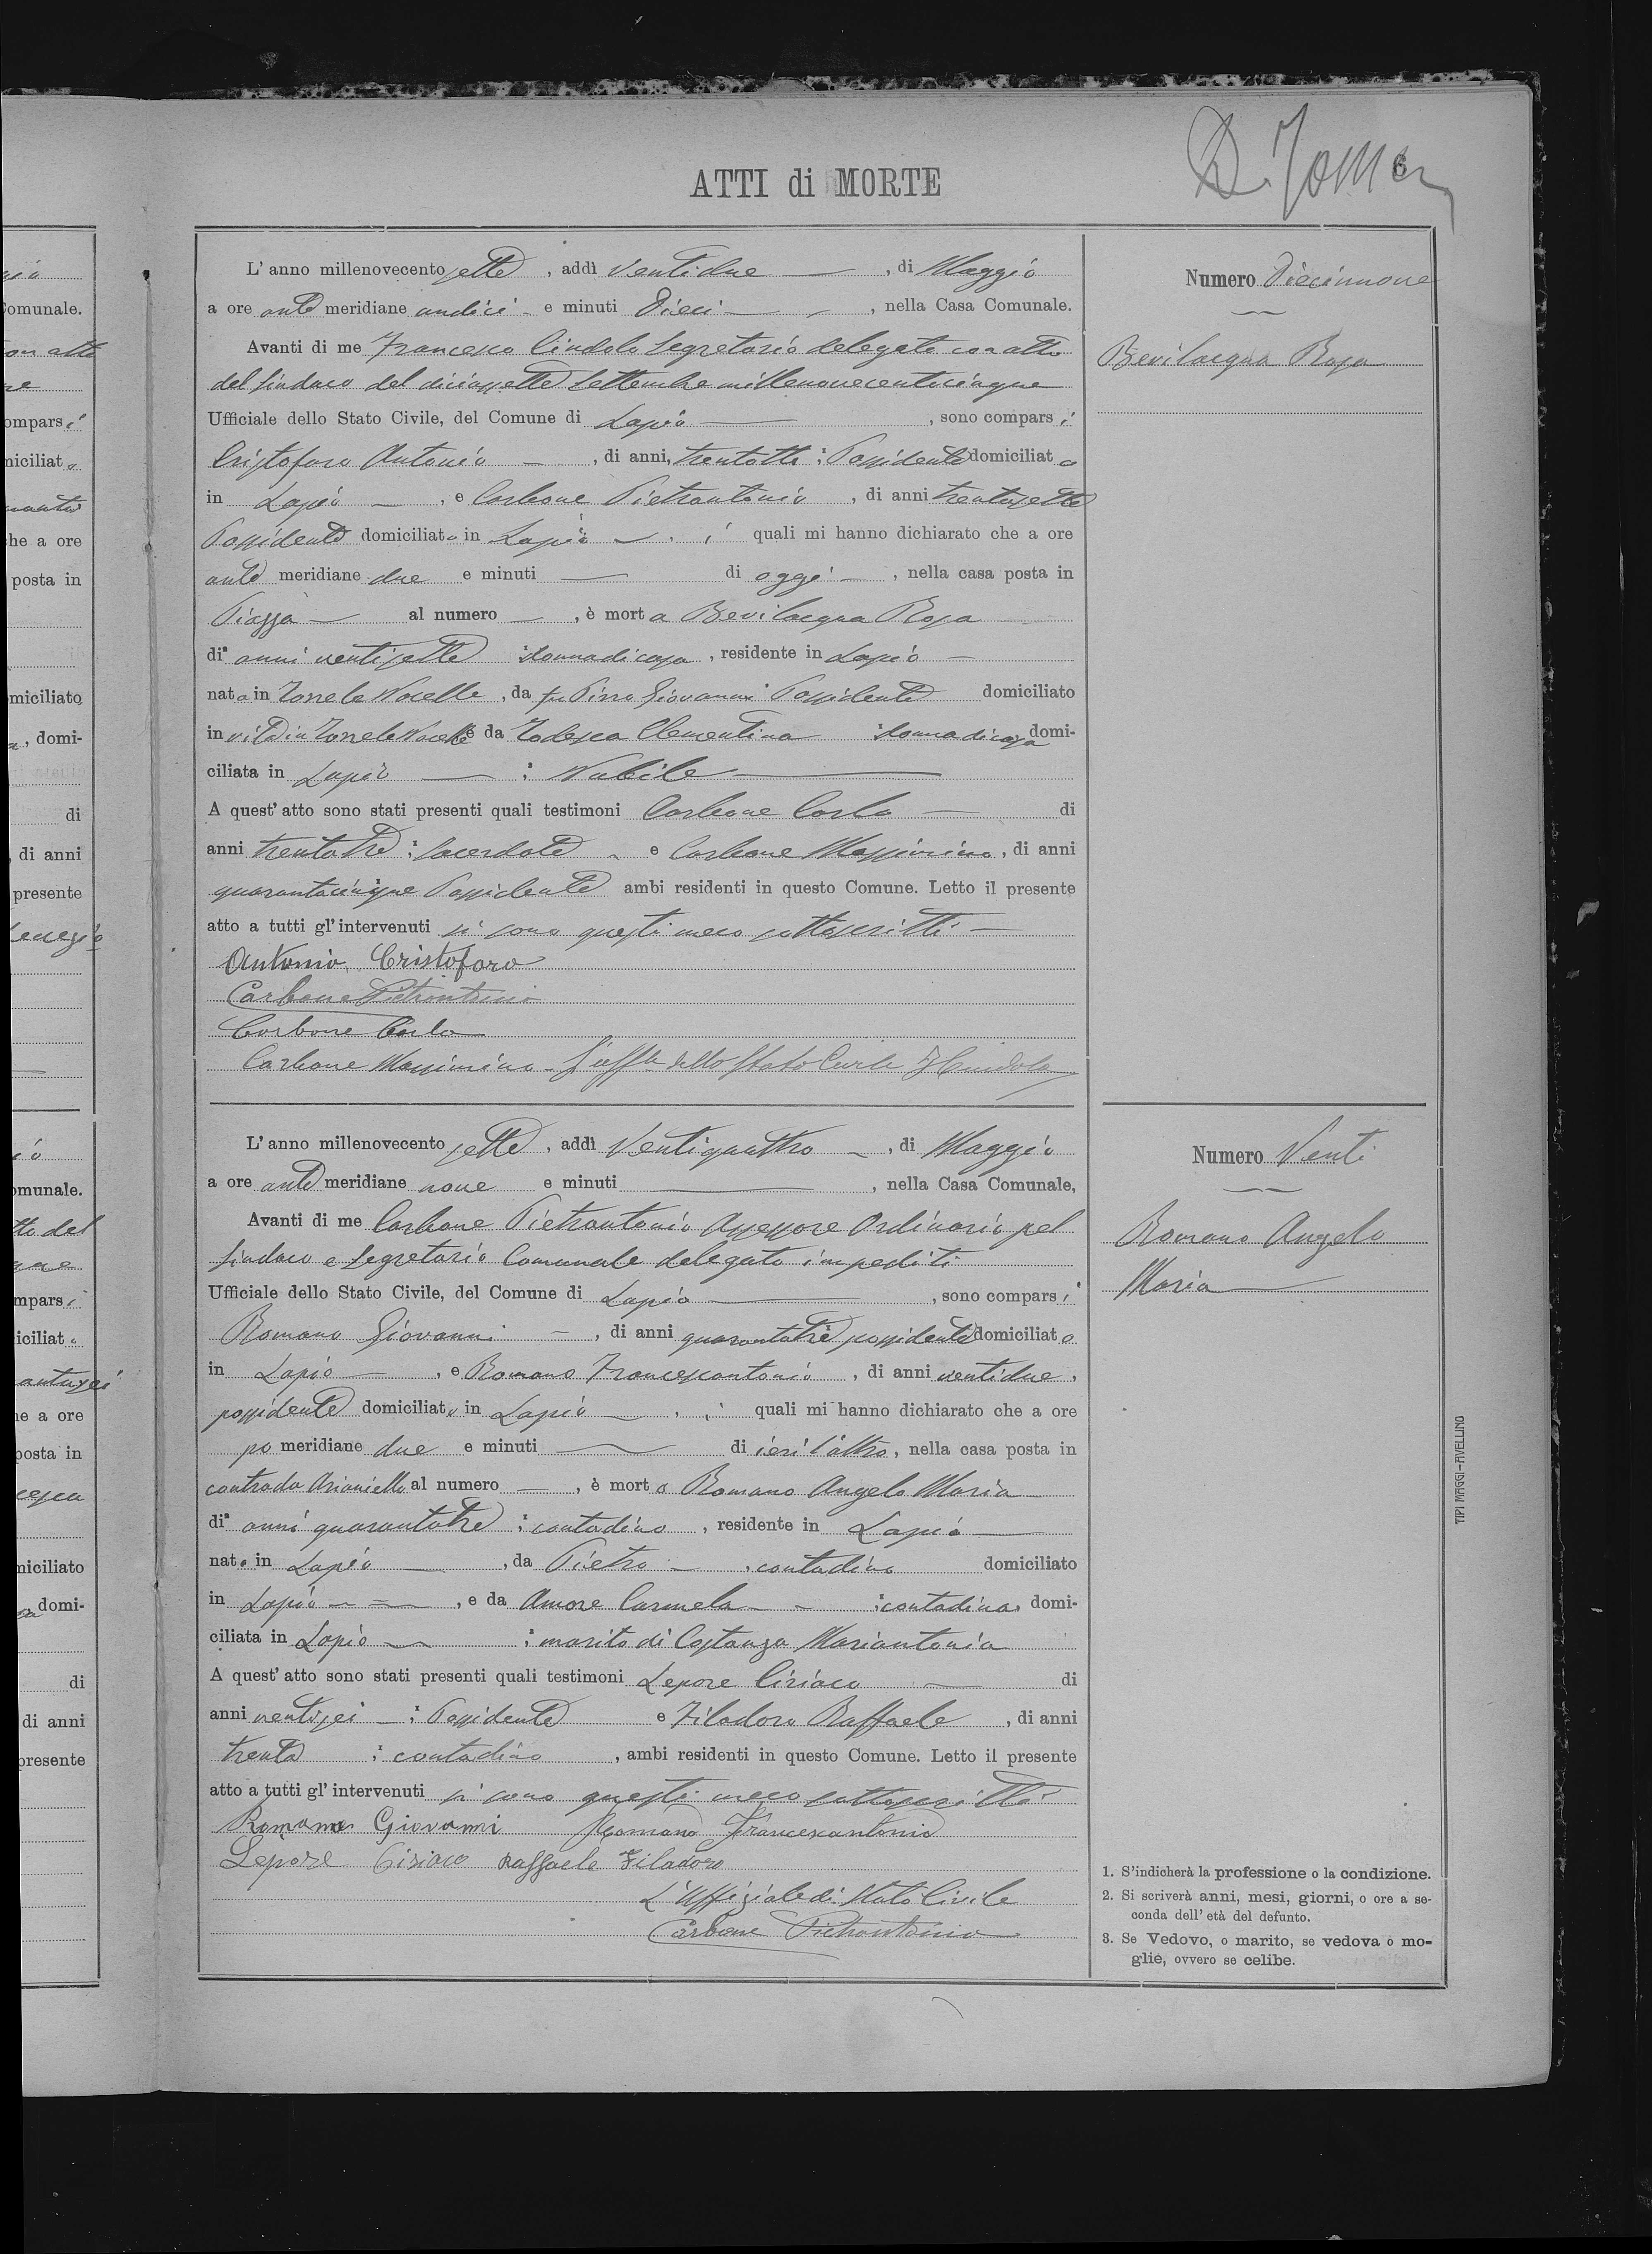 ATTI di MORTE
6
L'anno millenovecento sette, addì ventidue, di Maggio
a ore ante meridiane undici e minuti dieci, nella Casa Comunale.
Avanti di me Francesco Cindolo Segretario delegato con atto
del Sindaco del diciassette Settembre millenovecentocinque
Ufficiale dello Stato Civile, del Comune di Lapio, sono comparsi
Cristoforo Antonio, di anni, trentotto: Possidente domiciliato
in Lapio, e Carbone Pietrantonio, di anni trentasette
Possidente domiciliato in Lapio, i quali mi hanno dichiarato che a ore
ante meridiane due e minuti di oggi, nella casa posta in
Piazza al numero, è morta Bevilacqua Rosa
di anni ventisette: donna di casa, residente in Lapio
nata in Torre le Nocelle, da fu Pirro Giovanni: Possidente domiciliato
in vita in Torre le Nocelle e da Todesca Clementina: donna di casa domi-
ciliata in Lapio: Nubile
A quest'atto sono stati presenti quali testimoni Carbone Carlo di
anni trentatre: Sacerdote e Carbone Massimino, di anni
quarantacinque Possidente ambi residenti in questo Comune. Letto il presente
atto a tutti gl'intervenuti si sono questi meco sottoscritti
Antonio Cristoforo
Carbone Pietrantonio
Carbone Carlo
Carbone Massimino - L'uff. dello Stato Civile F. Cindolo
Numero Diecinnove
Bevilacqua Rosa
L'anno millenovecento sette, addì Ventiquattro, di Maggio
a ore ante meridiane nove e minuti, nella Casa Comunale,
Avanti di me Carbone Pietrantonio Assessore Ordinario pel
Sindaco e Segretario Comunale delegato impediti
Ufficiale dello Stato Civile, del Comune di Lapio, sono comparsi
Romano Giovanni, di anni quarantatre possidente domiciliato
in Lapio, e Romano Francescantonio, di anni ventidue,
possidente domiciliato in Lapio, i quali mi hanno dichiarato che a ore
po meridiane due e minuti di ieri l'altro, nella casa posta in
contrada Arianiello al numero, è morto Romano Angelo Maria
di anni quarantatre: contadino, residente in Lapio
nato in Lapio, da Pietro, contadino domiciliato
in Lapio, e da Amore Carmela: contadina, domi-
ciliata in Lapio: marito di Costanza Mariantonia
A quest'atto sono stati presenti quali testimoni Lepore Ciriaco di
anni ventisei: Possidente e Filadoro Raffaele, di anni
trenta: contadino, ambi residenti in questo Comune. Letto il presente
atto a tutti gl'intervenuti si sono questi meco sottoscritti
Romano Giovanni Romano Francescantonio
Lepore Ciriaco Raffaele Filadoro
L'Uffiziale di Stato Civile
Carbone Pietrantonio
Numero Venti
Romano Angelo
Maria
1. S'indicherà la professione o la condizione.
2. Si scriverà anni, mesi, giorni, o ore a se-
conda dell'età del defunto.
3. Se Vedovo, o marito, se vedova o mo-
glie, ovvero se celibe.
TIPI MAGGI-AVELLINO